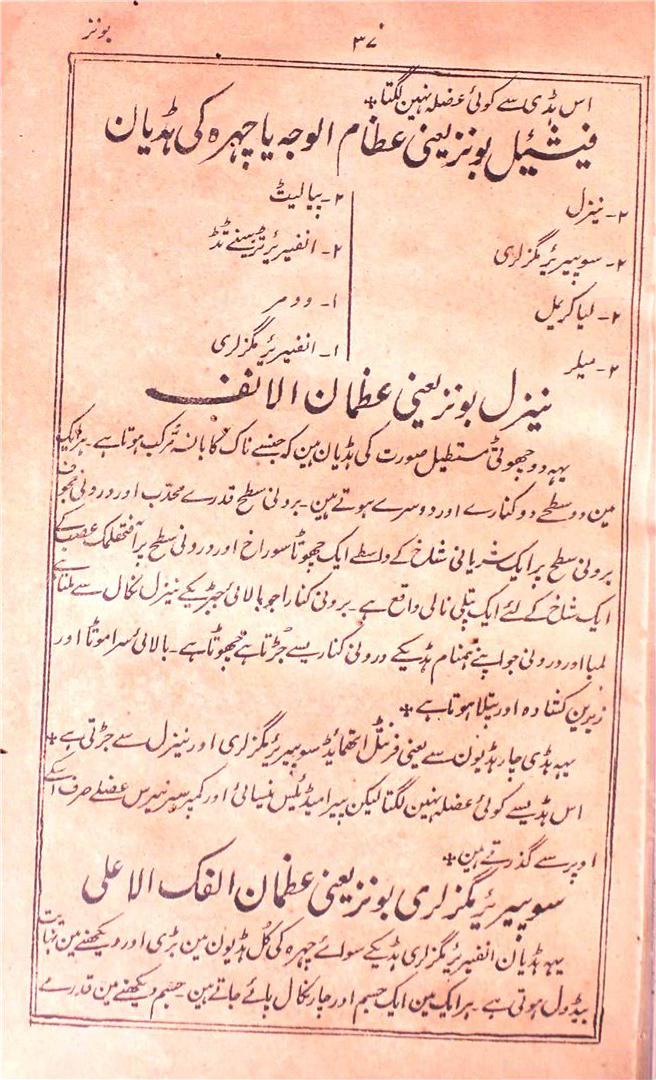 بونز
۳۷
اس ہڈی سے کوئی عضلہ نہین لگتا٭
فیشئیل بونز یعنی عظام الوجہ یا چہرہ کی ہڈیان
۲- نیزل
۲- سوپیریئر مگزلری
۲- لیاکریل
۲- میلر
۲- پیالیٹ
۲- انفیریئر ٹربینے ٹڈ
۱- وومر
۱- انفیریئر مگزلری
نیزل بونز یعنی عظمان الانف
یہہ دو چھوٹی مستطیل صورت کی ہڈیان ہین کہ جنسے ناک کا بانسہ مُرکب ہوتا ہے۔ ہرایک
مین دو سطح دو کنارے اور دو سرے ہوتے ہین۔ برونی سطح قدرے محدّب اور درونی مجوف
برونی سطح پر ایک شریانی شاخ کے واسطے ایک چھوٹا سوراخ اور درونی سطح پر آفتھلمک عصب کے
ایک شاخ کے لئے ایک پتلی نالی واقع ہے۔ برونی کنارا جو بالائی جبڑیکے نیزل نکال سے ملتا ہے
لمبا اور درونی جو اپنے ہمنام ہڈیکے درونی کناریسے جُڑتا ہے چھوٹا ہے۔ بالائی سرا موٹا اور
زیرین کشادہ اور پتلا ہوتا ہے٭
یہہ ہڈی چار ہڈیون سے یعنی فرنٹل اتھمائڈ سوپیریئر مگزلری اور نیزل سے جڑتی ہے٭
اس ہڈیسے کوئی عضلہ نہین لگتا لیکن پیرامیڈیلس نیسائی اور کمپرسیر نیرس عضلے صرف اسکے
اوپر سے گذرتے ہین٭
سوپیریئر مگزلری بونز یعنی عظمان الفک الاعلی
یہہ ہڈیان انفیریئر مگزلری ہڈیکے سوائے چہرہ کی کُل ہڈیون مین بڑی اور دیکھنے مین نہایت
بیڈول ہوتی ہے۔ ہر ایک مین ایک جسم اور چار نکال پائے جاتے ہین۔ جسم دیکھنے مین قدرے